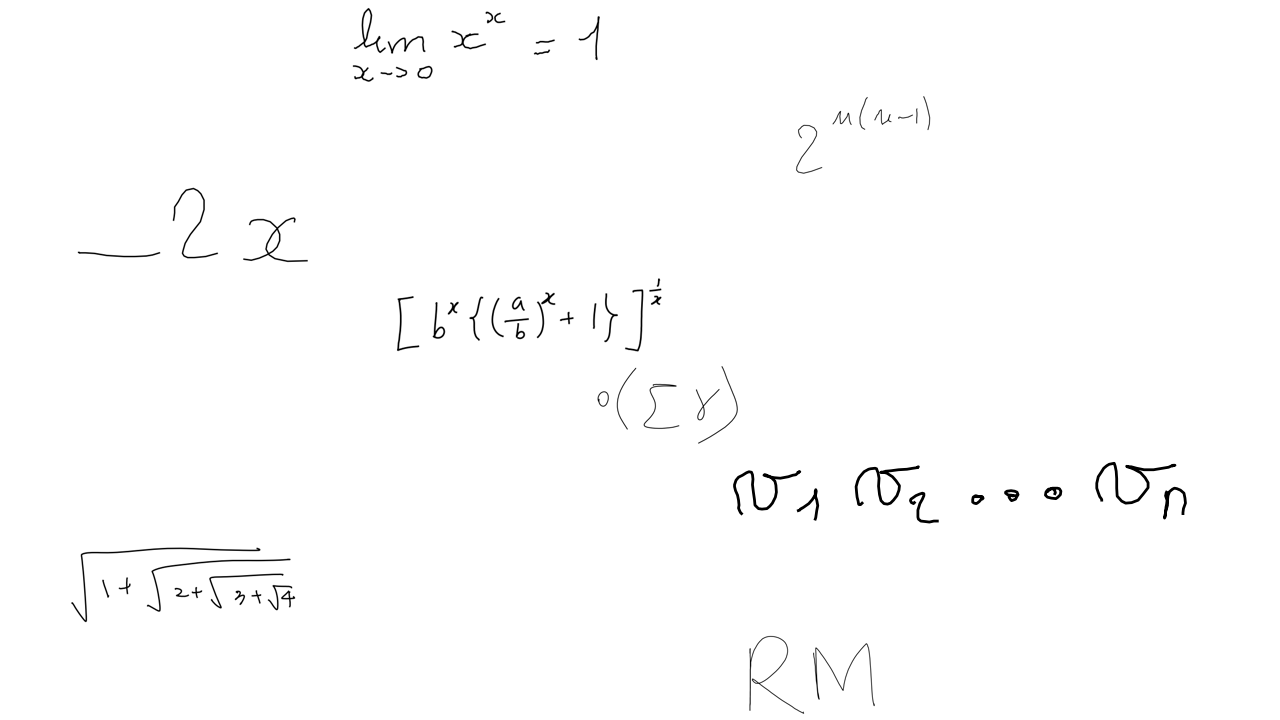 \lim_{x \to 0} x^x = 1
2^{n(n-1)}
-2x
[b^x\{(\frac{a}{b})^x + 1\}]^{\frac{1}{x}}
o(\sum \gamma)
v_1 v_2 \ldots v_n
\sqrt{1+\sqrt{2+\sqrt{3+\sqrt{4}}}}
RM